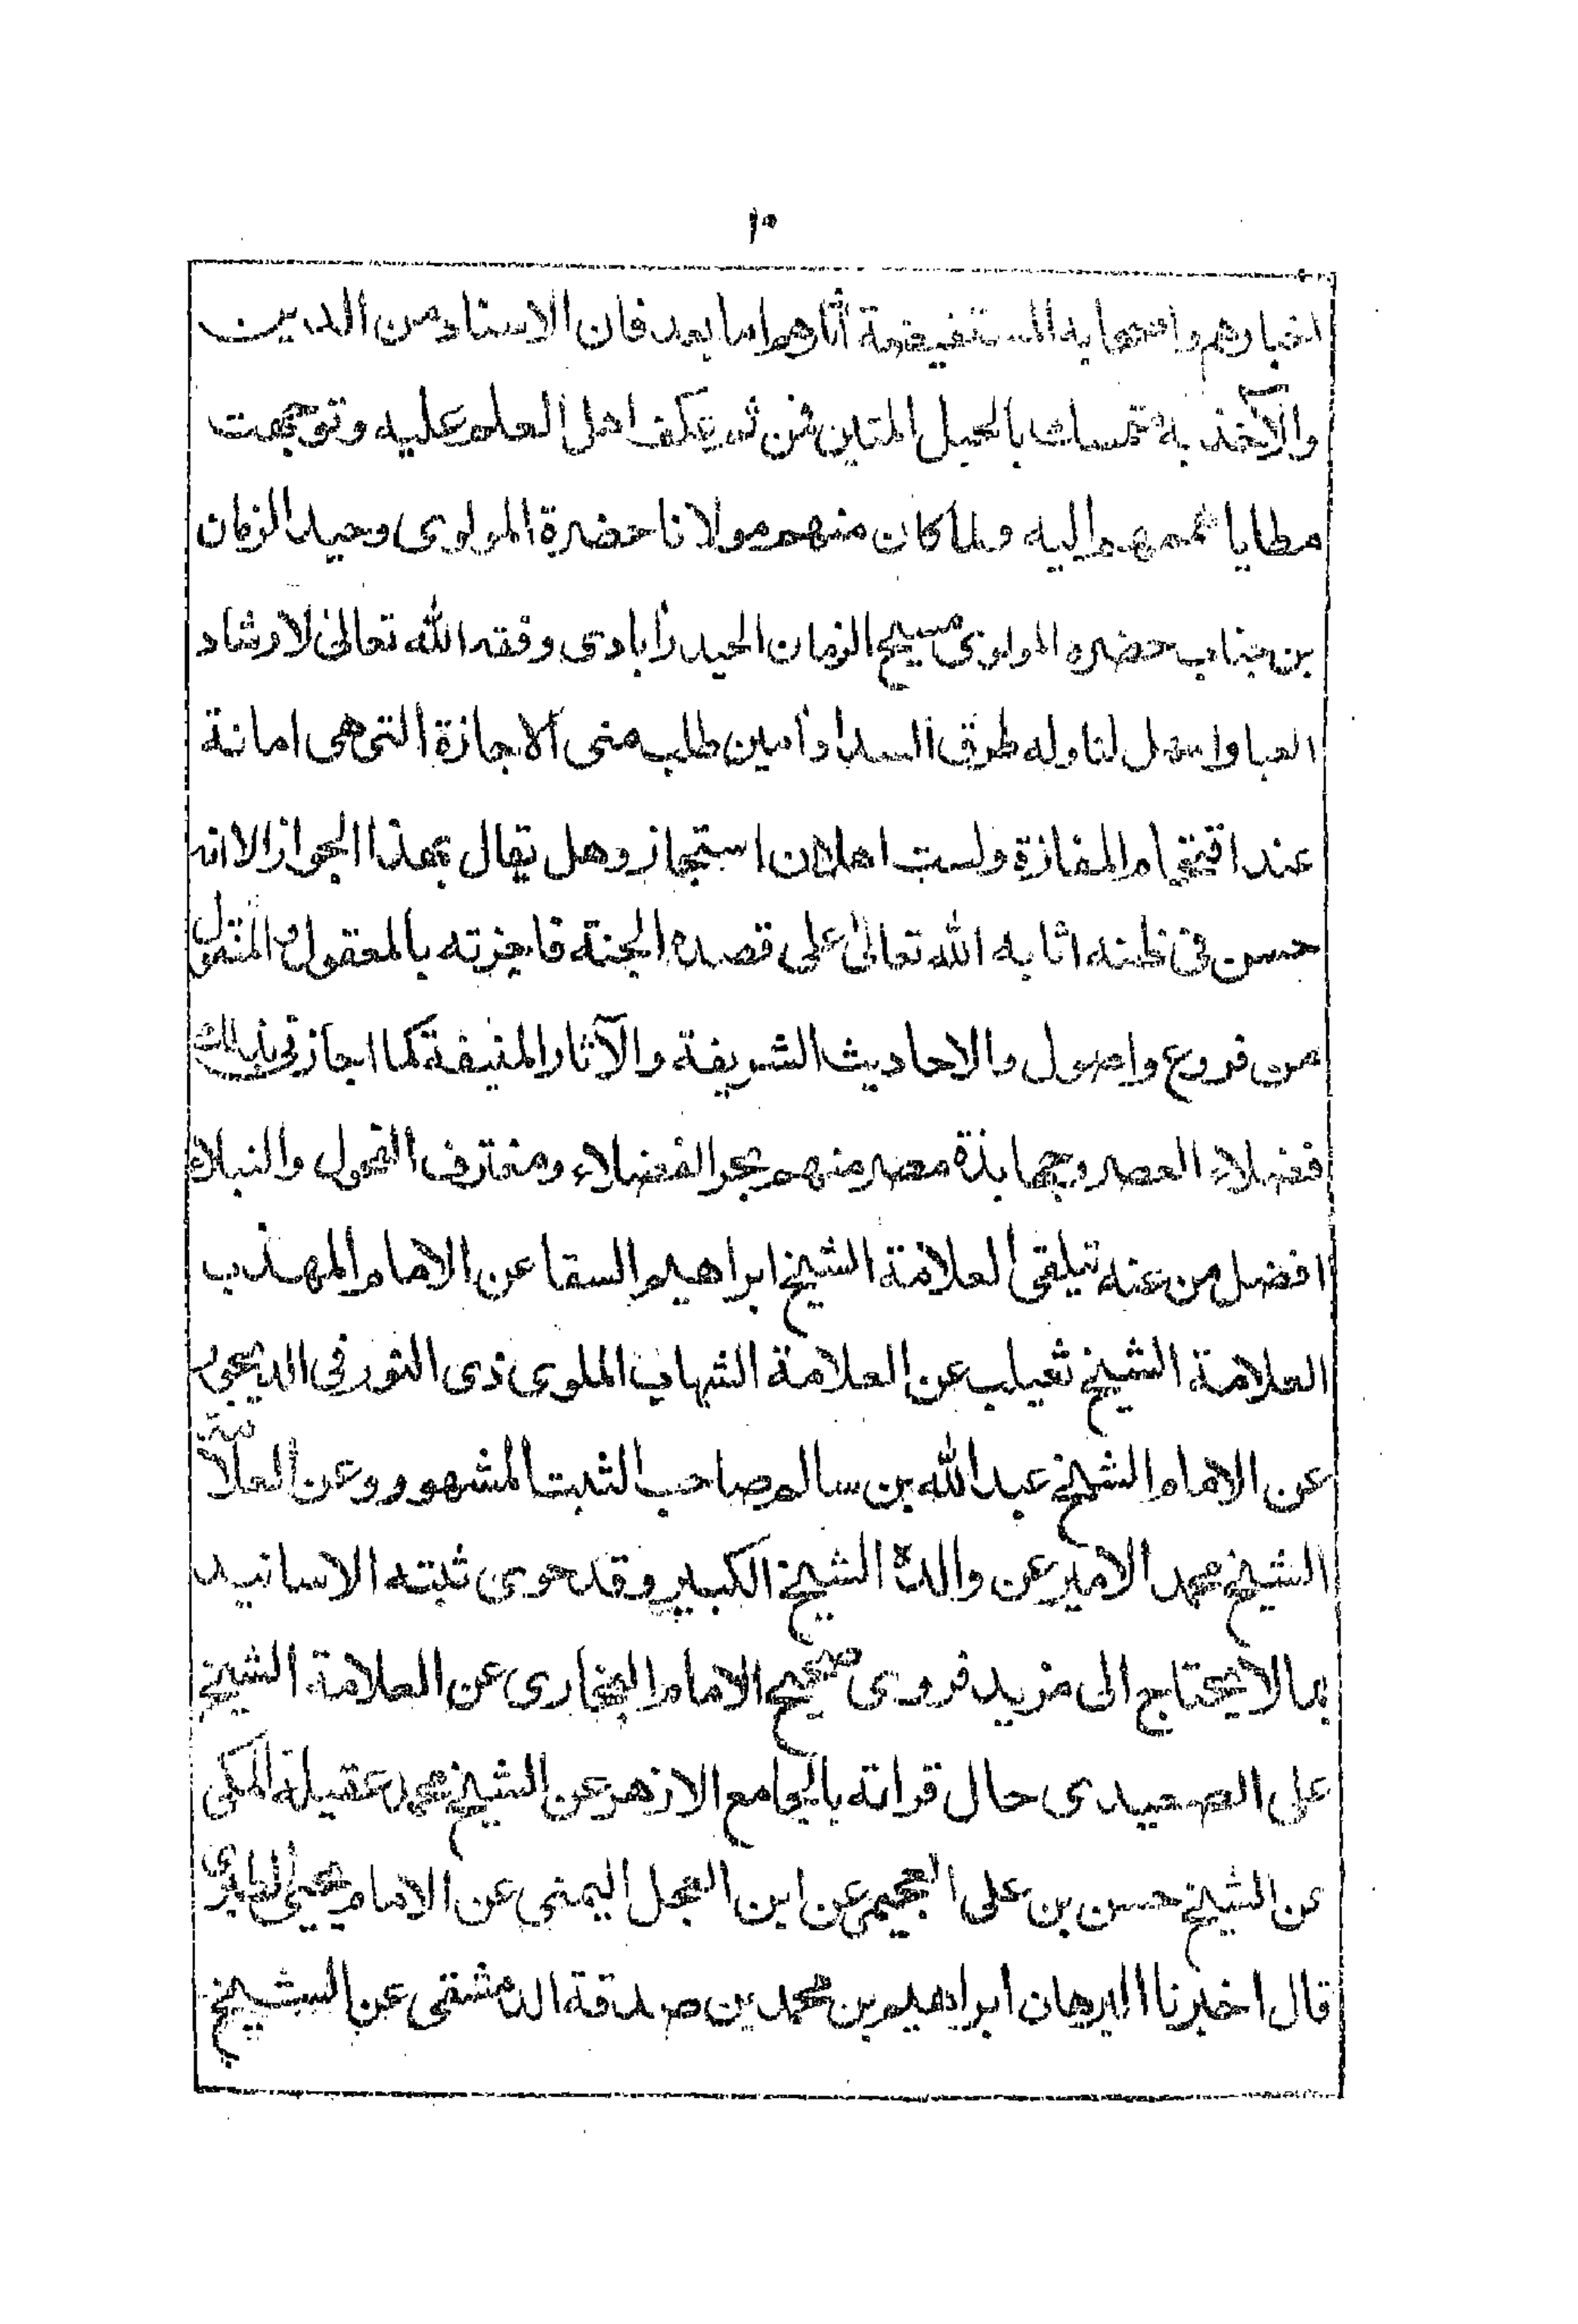 ١٥
اخبارهم واصحابه المستفيضة آثارهم اما بعد فان الاسناد من الدين
والآخذ به تمسك بالحبل المتين فمن ثم عكف اهل العلم عليه وتوجهت
مطايا هممهم اليه ولما كان منهم مولانا حضرة المولوى وحيد الزمان
بن جناب حضرة المولوى مسيح الزمان الحيدرآبادى وفقه الله تعالىٰ لارشاد
العباد لتناوله طرق السداد آمين طلب منى الاجازة التى هى امانة
عند اقتحام المفازة ولست اهلا لان استجاز وهل يقال بهذا الجواز الا انه
حسن فى ظنه اثابه الله تعالىٰ على قصده الجنة فاجزته بالمعقول والمنقول
من فروع واصول والاحاديث الشريفة والآثار المنيفة كما اجازنى بذلك
فضلاء العصر وجهابذة مصر منهم بحر الفضلاء ومغترف الفحول والنبلاء
افضل من عنه تيلقى العلامة الشيخ ابراهيم السقا عن الامام المهذب
العلامة الشيخ ثعيلب عن العلامة الشهاب الملوى ذى النور فى الديجور
عن الامام الشيخ عبد الله بن سالم صاحب الثبت المشهور وعن العلامة
الشيخ محمد الامير عن والده الشيخ الكبير وقد حوى ثبته الاسانيد
بما لا يحتاج الى مزيد فروى صحيح الامام البخارى عن العلامة الشيخ
على الصعيدى حال قراته بالجامع الازهر عن الشيخ محمد عقيلة المكى
عن الشيخ حسن بن على العجيمى عن ابن العجل اليمنى عن الامام يحيىٰ الطبرى
قال اخبرنا البرهان ابراهيم بن محمد بن صدقة الدمشقى عن الشيخ